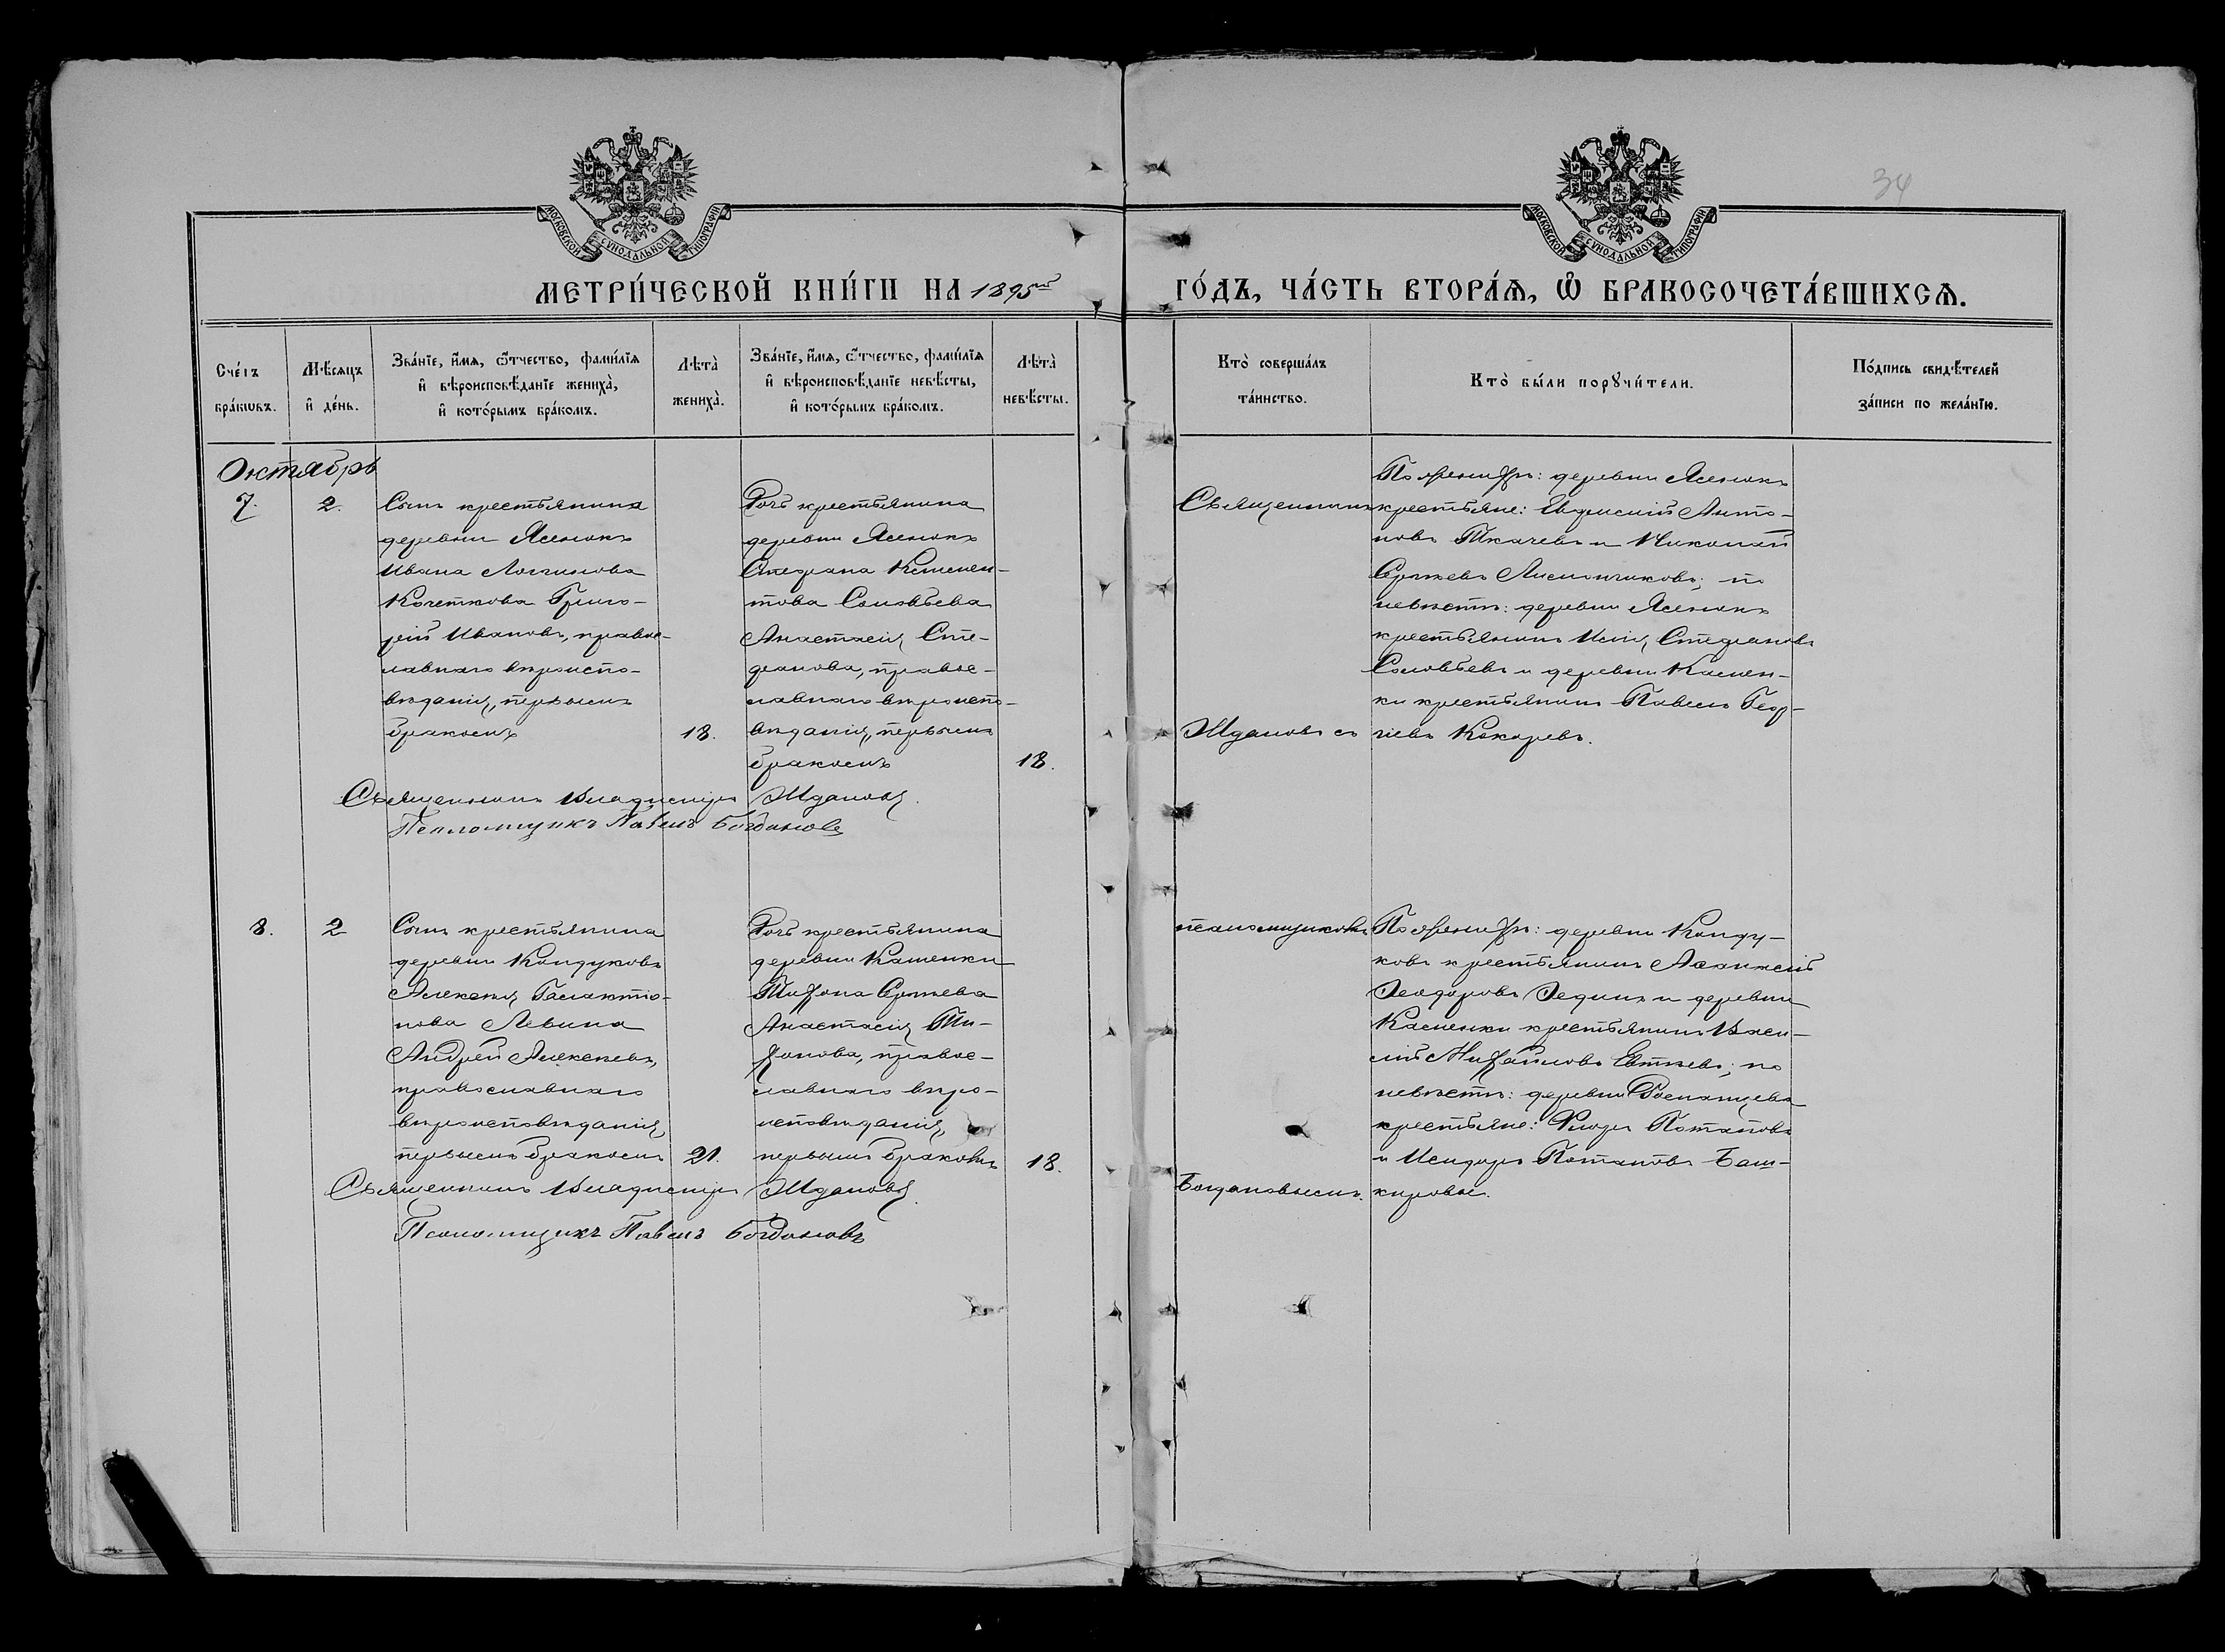 34
МОСКОВСКОЙ СѴНОДАЛЬНОЙ ТИПОГРАФІИ
МОСКОВСКОЙ СѴНОДАЛЬНОЙ ТИПОГРАФІИ
МЕТРИ́ЧЕСКОЙ КНИ́ГИ НА 1895й ГО́ДЪ, ЧА́СТЬ ВТОРА́Ѧ, Ѽ БРАКОСОЧЕТА́ВШИХСѦ.
Сче́тъ бра́кѡвъ.
Мѣ́сяцъ и҆ де́нь.
Зва́нїе, и҆́мѧ, ѻ҆́тчество, фами́лїѧ
и҆ вѣроисповѣ́данїе жениха̀,
и҆ кото́рымъ бра́комъ.
Лѣта̀ жениха̀.
Зва́нїе, и҆́мѧ, ѻ҆́тчество, фами́лїѧ
и҆ вѣроисповѣ́данїе невѣ́сты,
и҆ кото́рымъ бра́комъ.
Лѣта̀ невѣ́сты.
Кто̀ соверша́лъ та́инство.
Кто̀ бы́ли порꙋчи́тели.
По́дпись свидѣ́телей
за́писи по жела́нїю.
Октябрь
7.
2.
Сынъ крестьянина
деревни Ясенокъ
Ивана Логгинова
Кочеткова Григо-
рій Ивановъ, право-
славнаго вѣроиспо-
вѣданія, первымъ
бракомъ
18.
Дочь крестьянина
деревни Ясенокъ
Стефана Климен-
това Соловьева
Анастасія Сте-
фанова, право-
славнаго вѣроиспо-
вѣданія, первымъ
бракомъ
18.
Священникъ
Ждановъ съ
По женихѣ: деревни Ясенокъ
крестьяне: Евфимій Анто-
новъ Ткачевъ и Николай
Сергѣевъ ; по
невѣстѣ: деревни Ясенокъ
крестьянинъ Илія Стефановъ
Соловьевъ и деревни Камен-
ки крестьянинъ Павелъ Геор-
гіевъ Кокоревъ.
Священникъ Владиміръ Ждановъ.
Псаломщикъ Павелъ Богдановъ
8.
2
Сынъ крестьянина
деревни Кондуковъ
Алексѣя Галактіо-
нова Левина
Андрей Алексѣевъ,
православнаго
вѣроисповѣданія,
первымъ бракомъ
21.
Дочь крестьянина
деревни Каменки
Тихона Сергѣева
Анастасія Ти-
хонова, право-
славнаго вѣро-
исповѣданія,
первымъ бракомъ
18.
псаломщикомъ
Богдановымъ.
По женихѣ: деревни Конду-
ковъ крестьянинъ Аѳанасій
Ѳеодоровъ Ѳединъ и деревни
Каменки крестьянинъ Васи-
лій Михайловъ Евтѣевъ; по
невѣстѣ: деревни
крестьяне: Флоръ Потаповъ
и Исидоръ Потаповъ Баш-
кировы.
Священникъ Владиміръ Ждановъ.
Псаломщикъ Павелъ Богдановъ